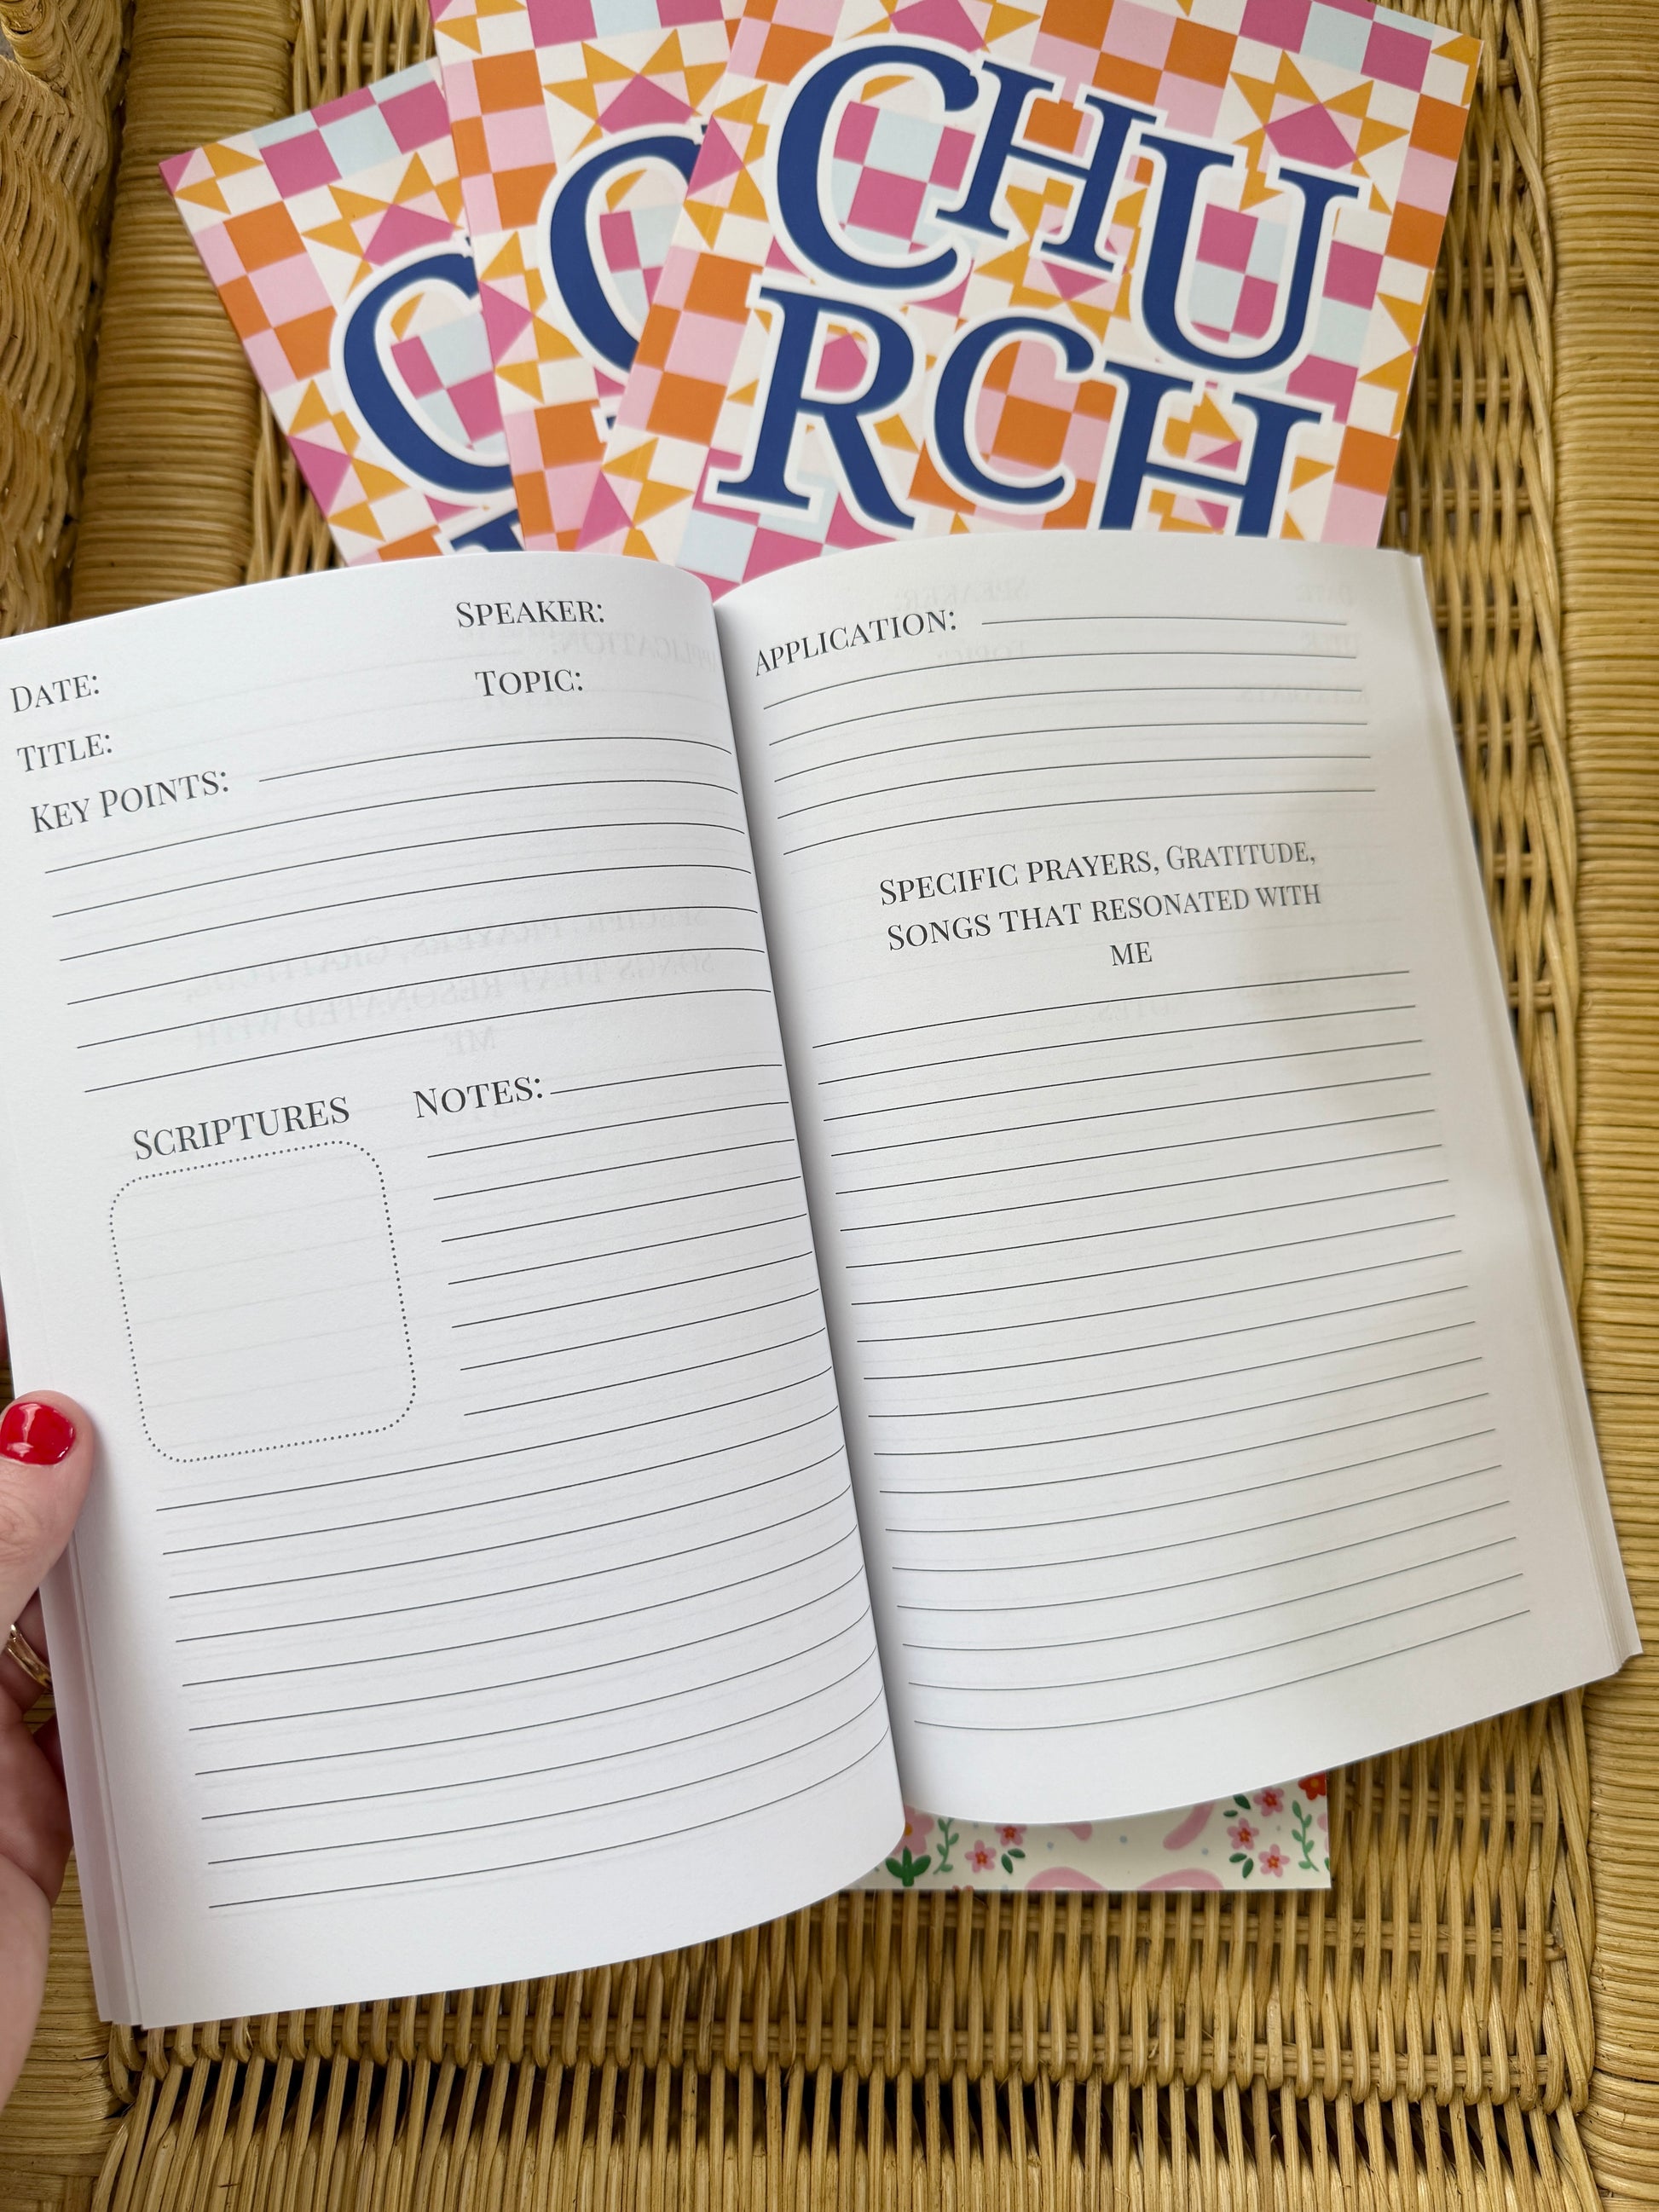 C
C
CHU
RCH
SPEAKER:
DATE:
TOPIC:
TITLE:
KEY POINTS:
SCRIPTURES
NOTES:
APPLICATION:
SPECIFIC PRAYERS, GRATITUDE,
SONGS THAT RESONATED WITH
ME